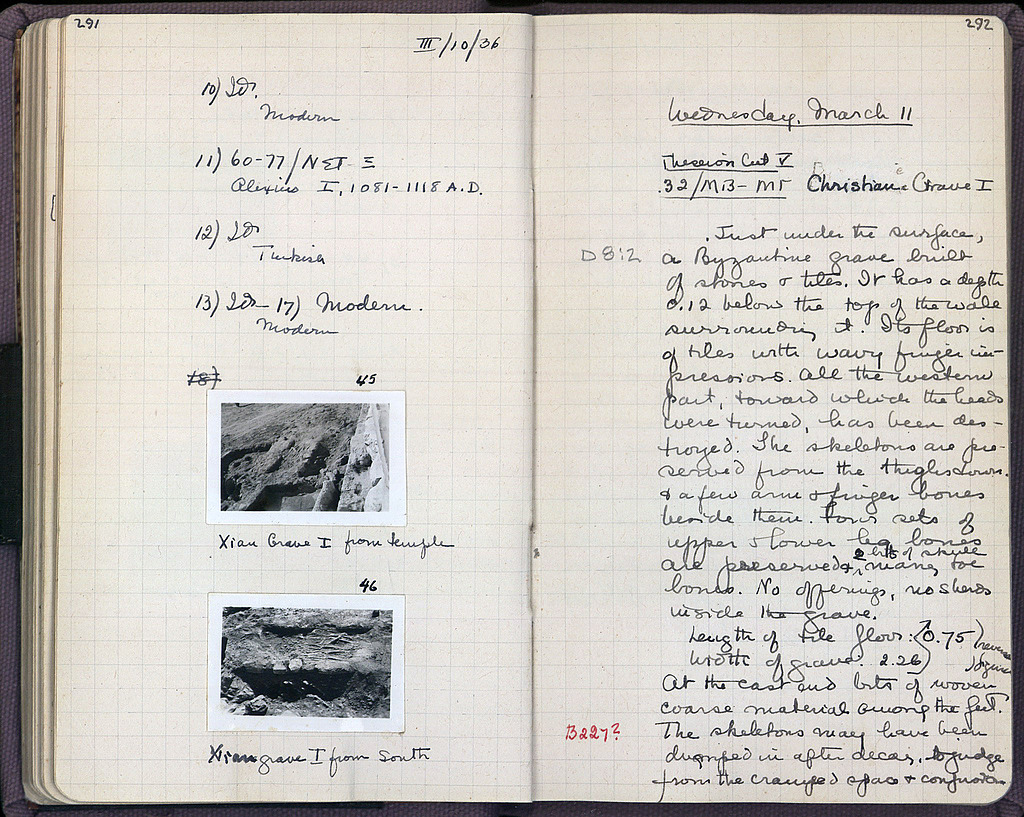 291
III/10/36
10) Id.
Modern
11) 60-77/ΝΣΤ-Ξ
Alexius I, 1081-1118 A.D.
12) Id.
Turkish
13) Id - 17) Modern.
Modern
18)
45
Xian Grave I from temple
46
Xian grave I from South
292
Wednesday, March 11
Theseion Cut V
32/ΜΒ-ΜΓ Christian Grave I
D 8:2
Just under the surface,
a Byzantine grave built
of stones & tiles. It has a depth
0.12 below the top of the wall
surrounding it. Its floor is
of tiles with wavy finger im-
pressions. All the western
part, toward which the heads
were turned, has been des-
troyed. The skeletons are pre-
served from the thighs down.
& a few arm & finger bones
beside them. Four sets of
upper & lower leg bones
are preserved & 2 bits of skull many toe
bones. No offerings, no sherds
inside the grave.
Length of tile floor: 0.75
Width of grave: 2.26
reverse
figures
At the east end bits of woven
coarse material among the feet.
B227?
The skeletons may have been
dumped in after decay, to judge
from the cramped space & confusion